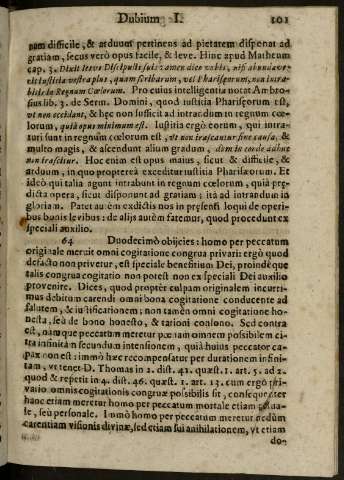 Dubium I. 101
nam difficile, & arduum pertinens ad pietatem dispenat ad
gratiam, secus verò opus facile, & leve. Hinc apud Matheum
cap. 5. Dixit Iesus Discipulis suis: amen dico vobis, nisi abundave-
rit iustitia vestra plus, quam scribarum, vel Pharisęorum, non intra-
bitis in Regnum Cœlorum. Pro cuius intelligentia notat Ambro-
sius lib. 3. de Serm. Domini, quod iustitia Pharisęorum est,
vt non occidant, & hęc non sufficit ad intrandum in regnum cœ-
lorum, quià opus minimum est. Iustitia ergò eorum, qui intra-
turi sunt in regnum cœlorum est, vt non irascantur sine causa, &
multo magis, & ascendunt alium gradum, dum in corde adhuc
non irascitur. Hoc enim est opus maius, sicut & difficile, &
arduum, in quo propterea exceditur iustitia Pharisæorum. Et
ideò qui talia agunt intrabunt in regnum cœlorum, quià prę-
dicta opera, sicut disponunt ad gratiam; ità ad intrandum in
gloriam. Patet autem ex dictis nos in pręsenti loqui de operi-
bus bonis levibus: de alijs autèm fatemur, quod procedunt ex
speciali auxilio.
64 Duodecimò obijcies: homo per peccatum
originale meruit omni cogitatione congrua privari: ergò quod
defacto non privetur, est speciale beneficium Dei, proindèque
talis congrua cogitatio non potest non ex speciali Dei auxilio
provenire. Dices, quod proptèr culpam originalem incurri-
mus debitum carendi omni bona cogitatione conducente ad
salutem, & iustificationem; non tamèn omni cogitatione ho-
nesta, seù de bono honesto, & rationi consono. Sed contra
est, namque peccatum meretur pœnam omnem possibilem ci-
tra infinitam secundum intensionem, quià huius peccator ca-
pax non est: immò hæc recompensatur per durationem infini-
tam, vt tenet D. Thomas in 2. dist. 42. quæst. 1. art. 5. ad 2.
quod & repetit in 4. dist. 46. quæst. 1. art. 13. cum ergò pri-
vatio omnis cogitationis congruæ possibilis sit, consequenter
hanc etiam meretur homo per peccatum mortale etiam
le, seù personale. Immò homo per peccatum meretur nedùm
carentiam visionis divinæ, sed etiam sui anihilationem, vt etiam
do-